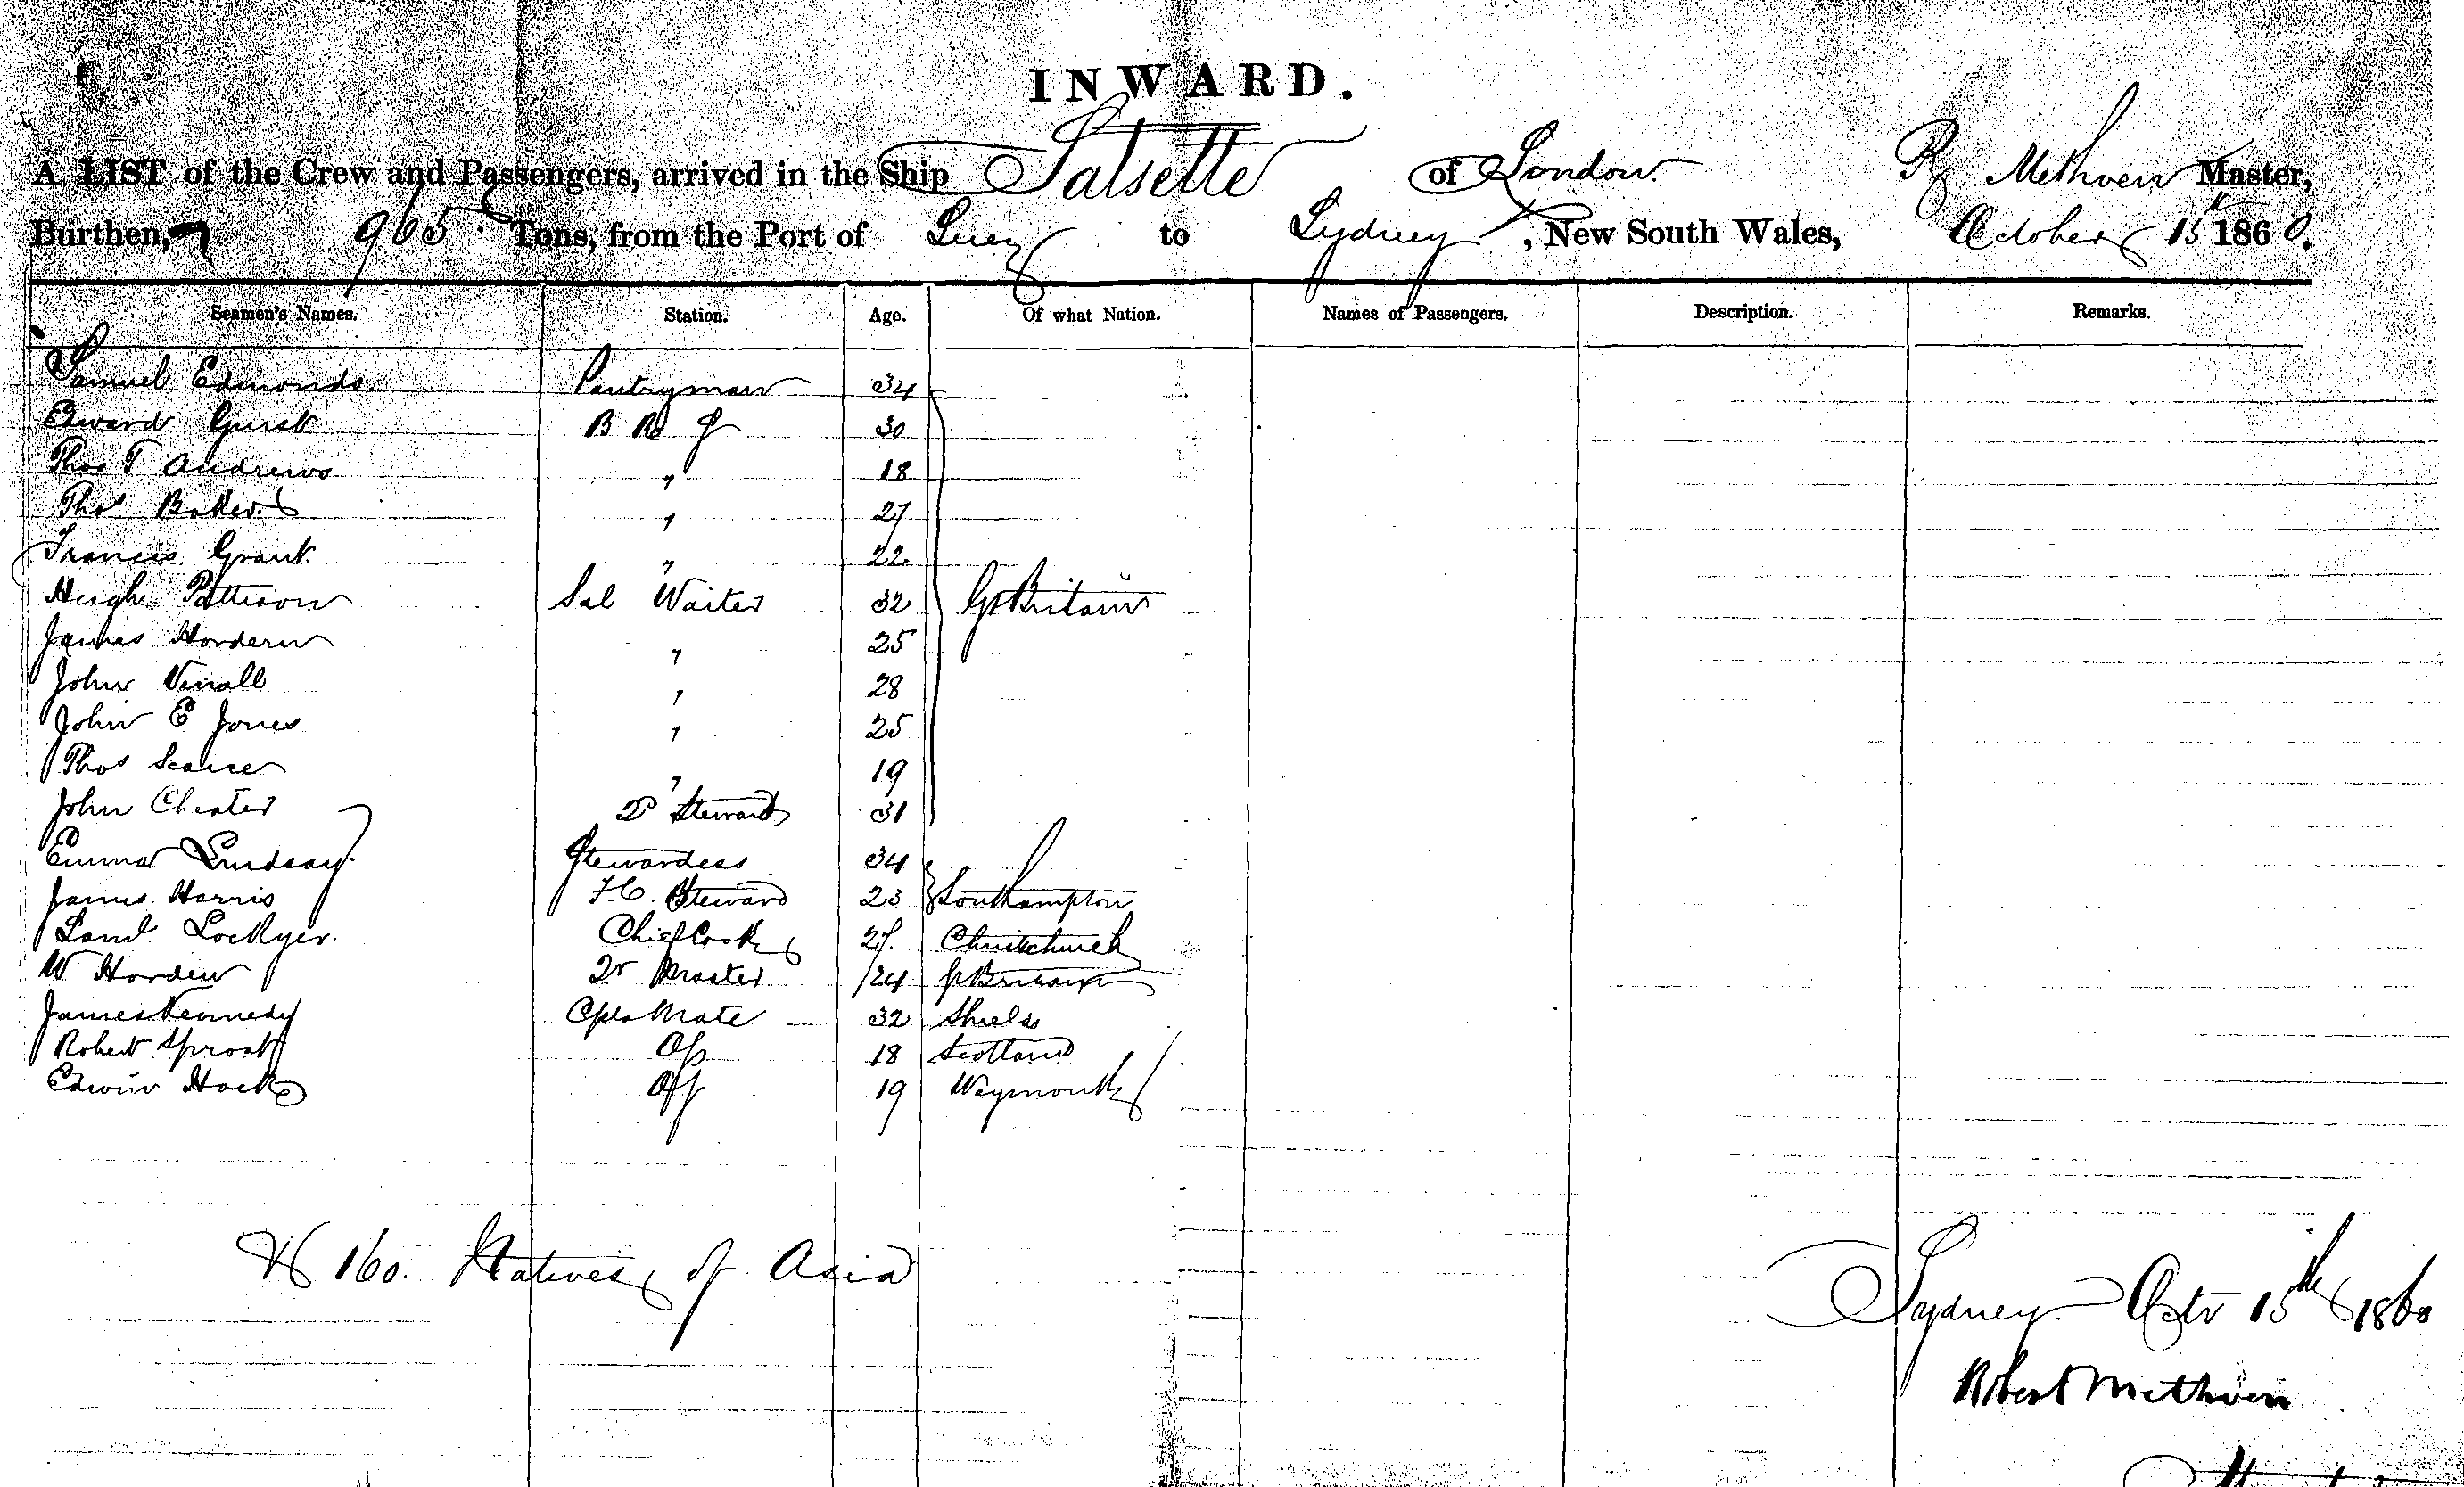 INWARD.
A LIST of the Crew and Passengers, arrived in the Ship Salsette of London R Methven Master,
Burthen, 965 Tons, from the Port of Suez to Sydney, New South Wales, October 15 1860.
Seamen's Names. Station. Age. Of what Nation. Names of Passengers. Description. Remarks.
Samuel Edmonds Pantryman 34
Edward 30
Thos T Andrews " 18
Thos Baker " 27
Francis Grant " 22
Hugh Pattison Sal Waiter 32 Gt Britain
James Hordern " 25
John " 28
John E Jones " 25
Thos " 19
John Chester Steward 31
Emma Lindsay Stewardess 34
James Harris Steward 23 Southampton
Saml Lockyer Chief Cook 27 Christchurch
W Master 24 Gt Britain
James Kennedy Mate 32 Shields
Robert Sproat 18 Scotland
Edwin 19 Weymouth
& 160 Natives of Asia
Sydney Octr 15th 1860
Robert Methven